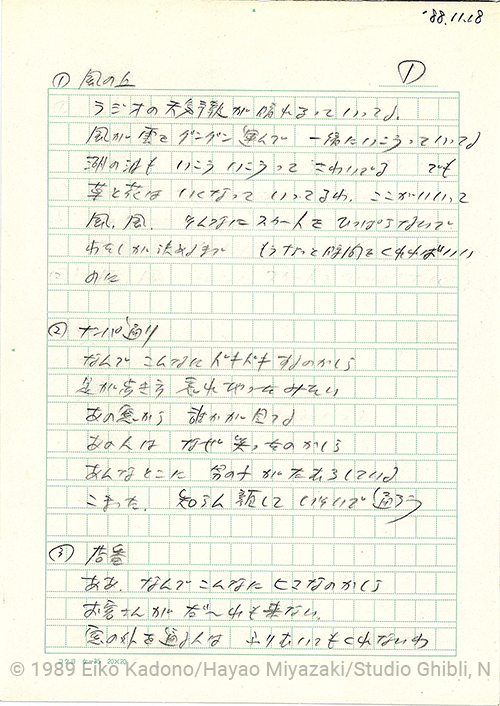 '88.11.18
①
① 風の丘
ラジオの天気予報が晴れるっていってる
風が雲をグングン運んで 一緒にいこうっていってる
湖の波も いこういこうって さわいでる でも
草と花は いくなって いってるわ。ここがいいって
風、風、そんなにスカートを ひっぱらないで
わたしが決めるまで もうちょっと時間をくれればいい
のに
② ナンパ通り
なんで こんなに ドキドキするのかしら
足が歩き方 忘れちゃったみたい
あの窓から 誰かが見てる
あの人は なぜ笑ったのかしら
あんなとこに 男の子がたむろしている
こまった。知らん顔して いそいで通ろう
③ 店番
ああ、なんでこんなに ヒマなのかしら
お客さんが だ〜れも来ない。
窓の外を通る人は ふりむいてもくれないわ
コクヨ ケ-35 20×20
© 1989 Eiko Kadono/Hayao Miyazaki/Studio Ghibli, N